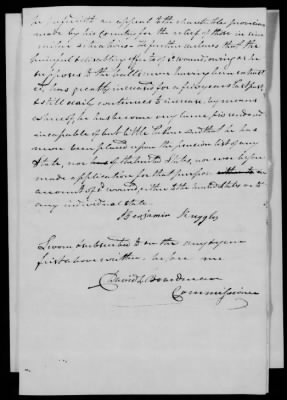 he submits an appeal to the charitable provision
made by his Country for the relief of those in
similar situations. He further declares that the
painful & debilitating effects of sd. wound, owing as he
supposes to the balls never having been extract
ed, has greatly increased for a few years last past,
& still and continues to increase, by means
whereof, he has become very lame, & is rendered
incapable of but little labour and that he has
never been placed upon the pension list of any
State, nor of the United States, nor ever before
made application for that purpose on
account of sd. wounds, either to the United States or to
any individual state.
Benjamin Ruggles
Sworn & subscribed to on the day & year
first above written, before me
David S. Boardman
Commissioner